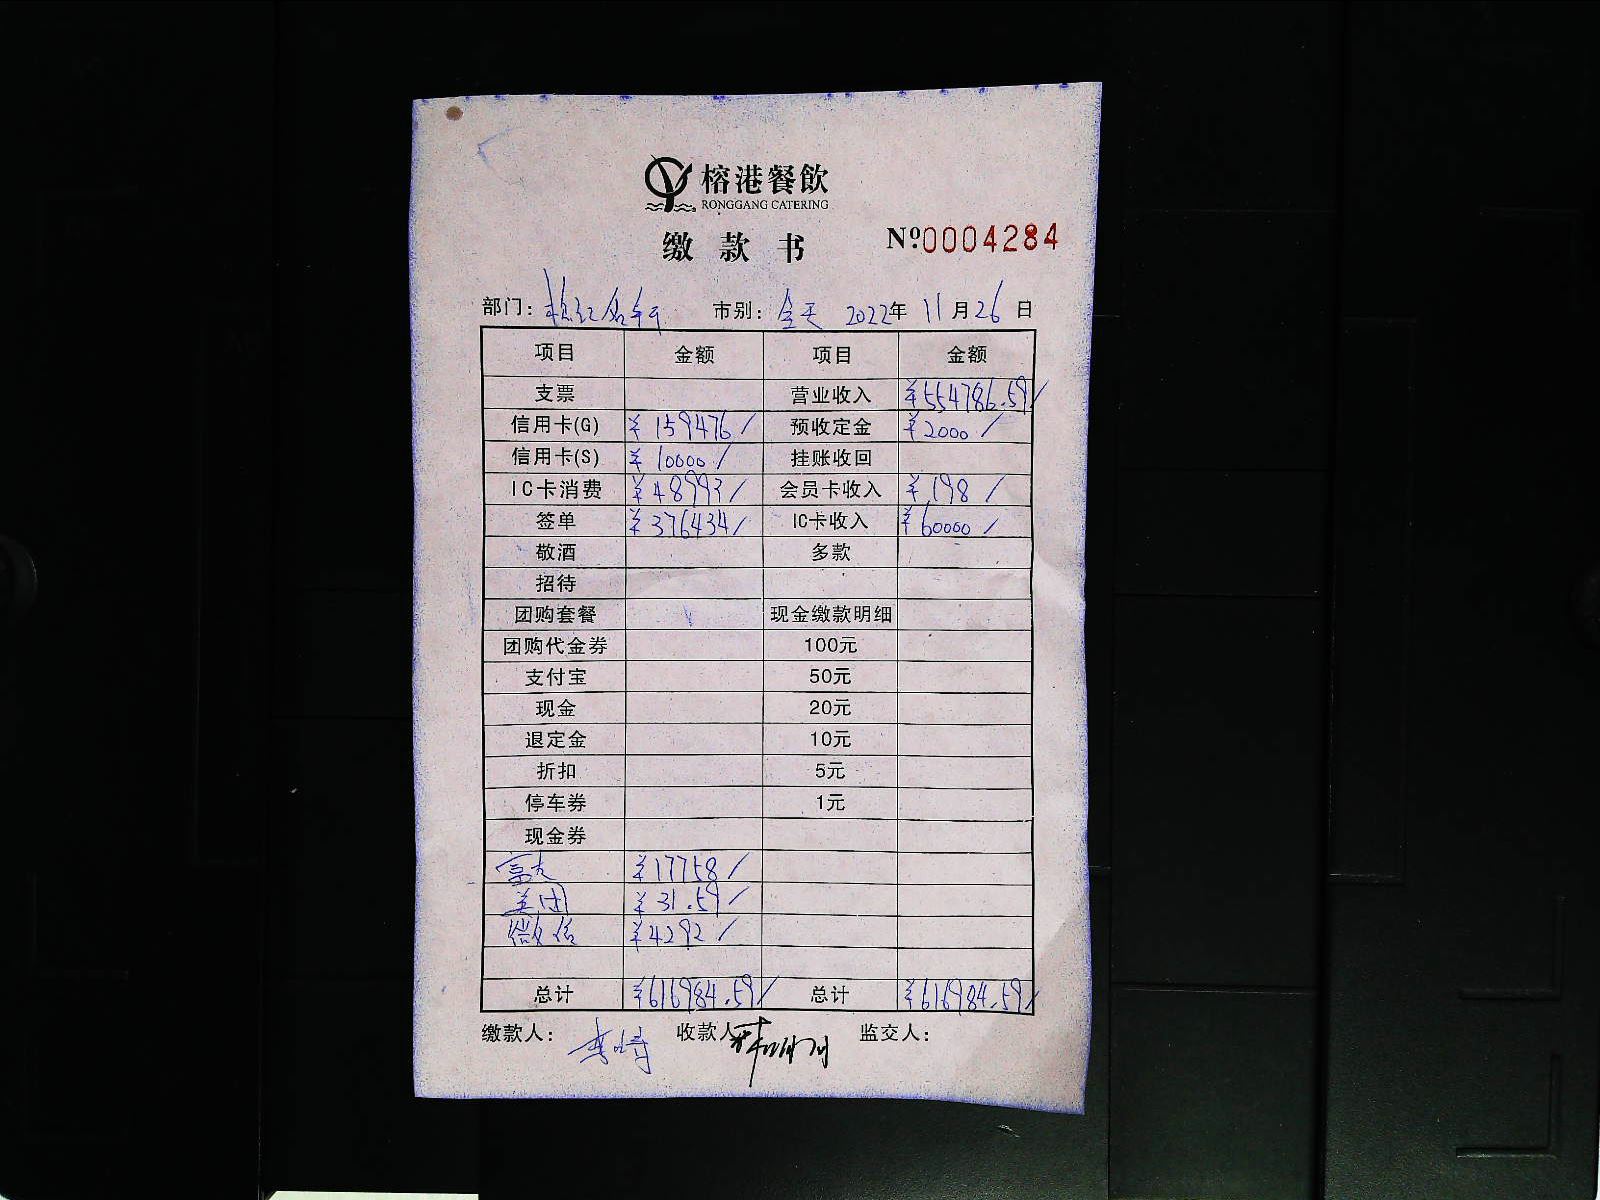 榕港餐飲
RONGGANG CATERING
缴款书
Nº0004284
部门: 市别: 全天 2022年 11月26日
项目 金额 项目 金额
支票 营业收入 ¥554786.59/
信用卡(G) ¥159476/ 预收定金 ¥2000/
信用卡(S) ¥10000/ 挂账收回
IC卡消费 ¥48993/ 会员卡收入 ¥198/
签单 ¥376434/ IC卡收入 ¥60000/
敬酒 多款
招待
团购套餐 现金缴款明细
团购代金券 100元
支付宝 50元
现金 20元
退定金 10元
折扣 5元
停车券 1元
现金券
¥17758/
美团 ¥31.59/
微信 ¥4292/
总计 ¥616984.59/ 总计 ¥616984.59/
缴款人: 收款人 监交人: